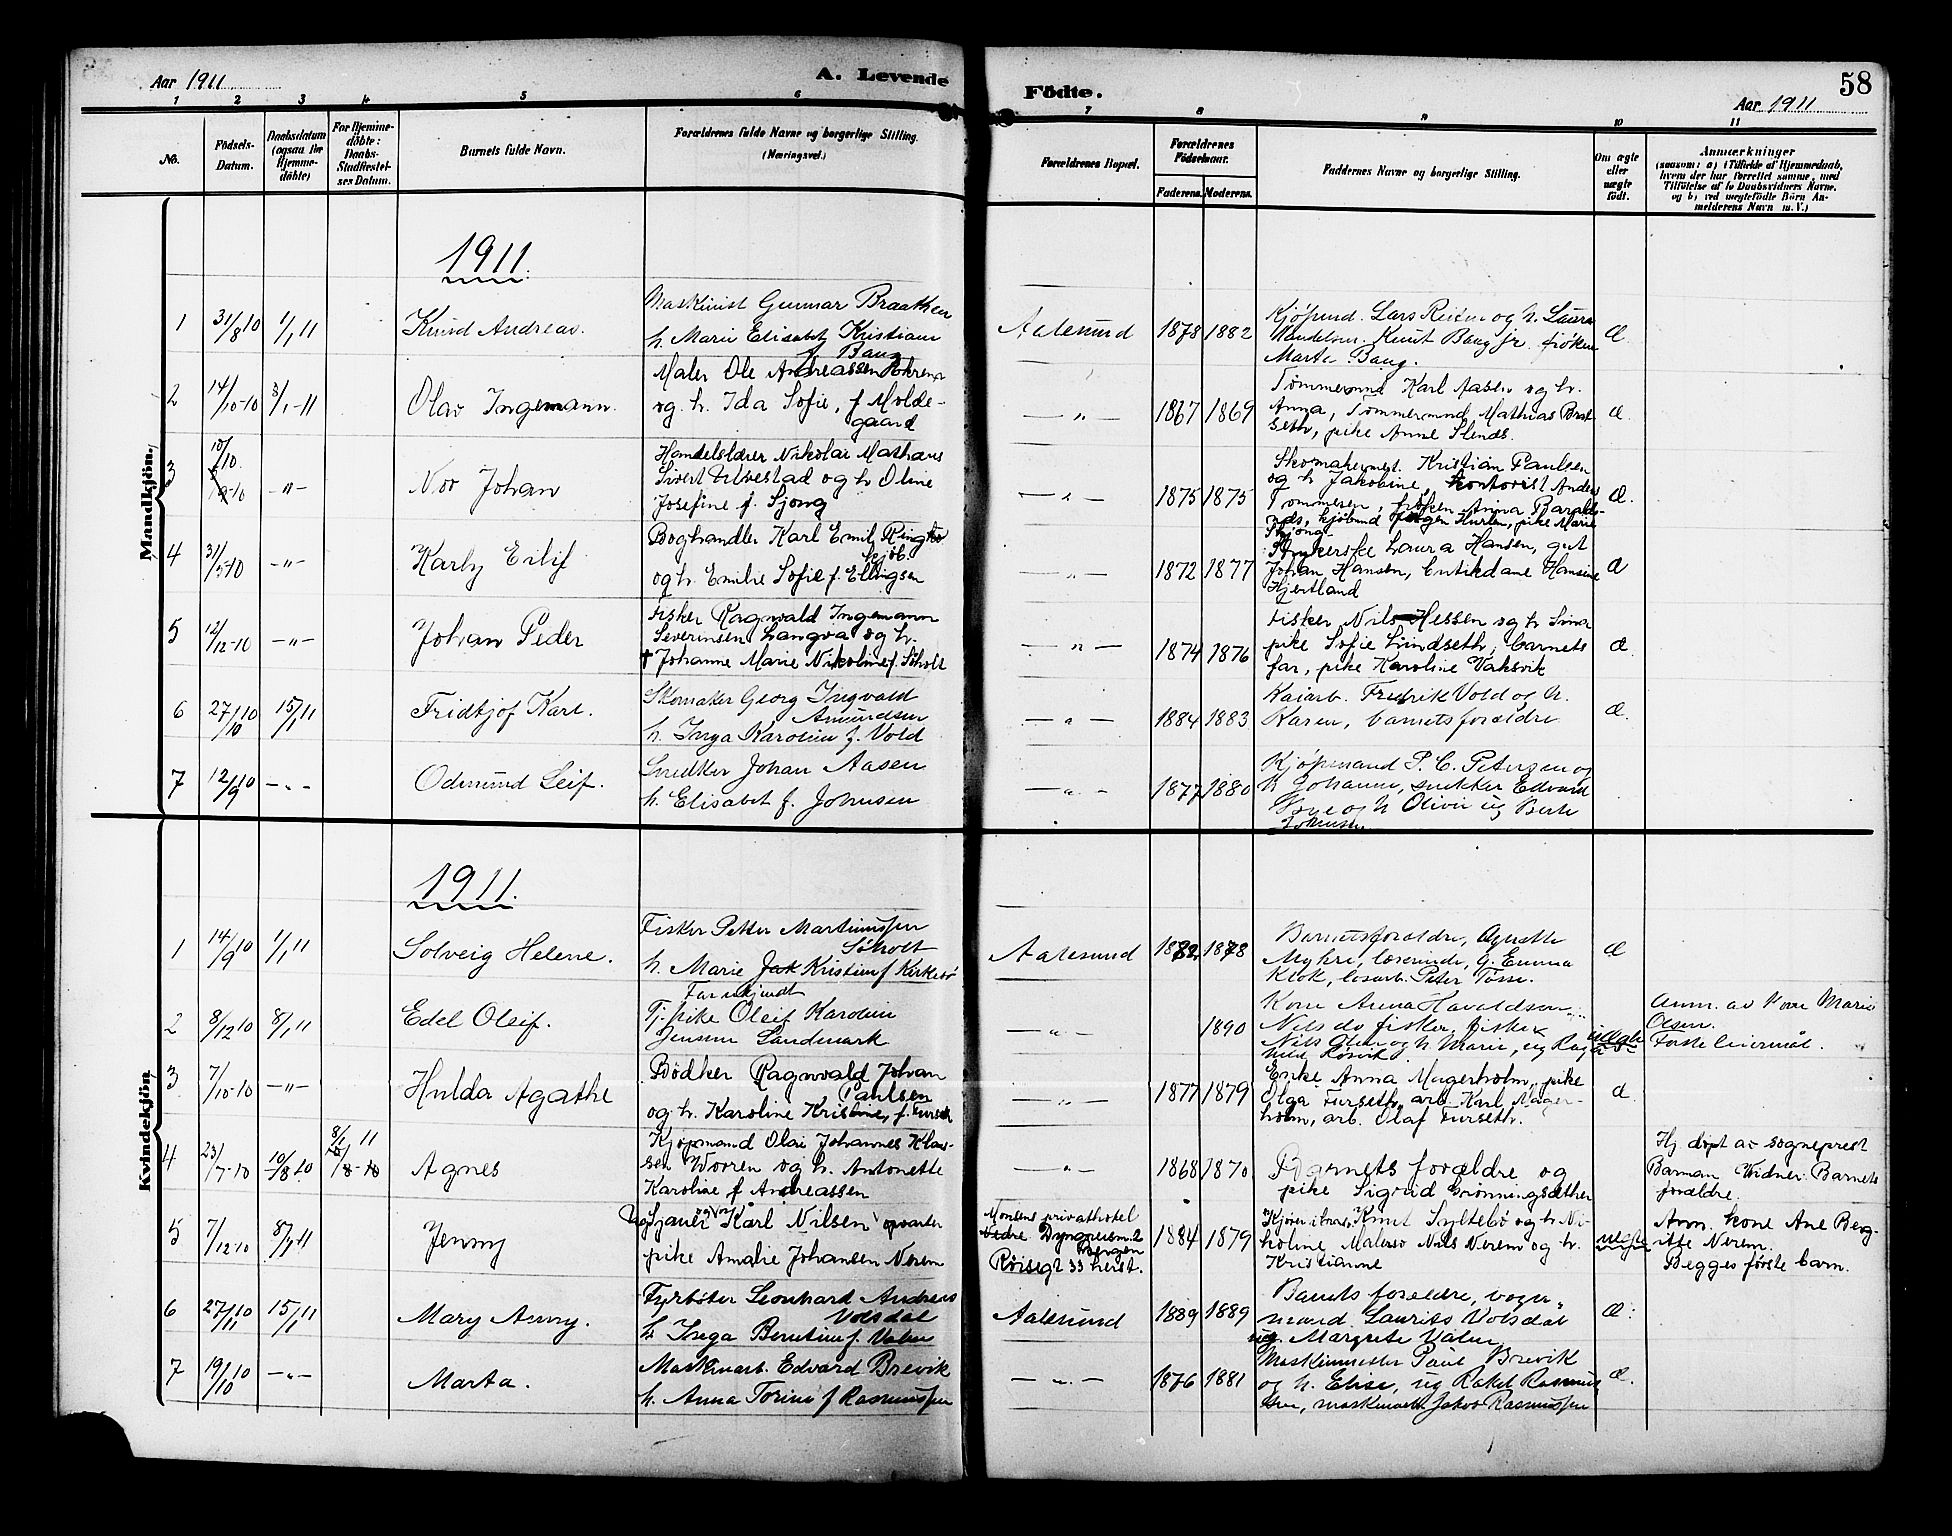 Aar 1911
A. Levende
Födte.
58
Aar 1911
1 2 3 4 5 6 7 8 9 10 11
No.
Födsels-
Datum.
Daabsdatum
(ogsaa for
Hjemme-
döbte)
For Hjemme-
döbte:
Daabs-
Stadfæstel-
ses Datum.
Barnets fulde Navn.
Forældrenes fulde Navne og borgerlige Stilling.
(Næringsvei.)
Forældrenes Bopæl.
Forældrenes
Födselsaar.
Faderens. Moderens.
Faddernes Navne og borgerlige Stilling.
Om ægte
eller
uægte
født.
Anmærkninger
(saasom: a) i Tilfælde af Hjemmedaab,
hvem der har forrettet samme, med
Tilföielse af to Daabsvidners Navne.
og b) ved uægtefödte Börn An-
melderens Navn m. V.)
Mandkjön.
1911.
1 31/8 10 1/1 11
Knud Andreas.
Maskinist Gunnar Braathen
h. Marie Elisabet Kristiane
f. Bang
Aalesund 1878 1882
Kjøpmd. Lars Reiten og h. Laura
Knut Bang jr. frøken
Marta Bang.
Æ
2 14/10-10 8/1-11
Olav Ingemann.
Maler Ole Andreassen
og h. Ida Sofie, f. Molde-
gaard
— " — 1867 1869
Tømmermd Karl Aasen og h.
Anna, Tømmermd Mathias Brat
seth, pike Anne Slends.
Æ
3 10/10 -10 — " —
Nor Johan
Handelslærer Nikolai Mathias
Sivert Ulvestad og h Oline
Josefine f. Sjong
— " — 1875 1875
Skomakermest. Kristian Paulsen
og h Jakobine, kontorist Anders
Tommesen, frøken Anna
kjøbmd Jørgen Hurlen, pike Marie
Sjong
Æ.
4 31/5-10 — " —
Karly Eilif
Boghandler Karl Emil Ringbo
og h Emilie Sofie f. Ellingsen
— " — 1872 1877
Strykerske Laura Hansen, gut
Johan Hansen, Butikdame Hansine
Hjertland
Æ
5 12/12-10 — " —
Johan Peder
Fisker Ragnvald Ingemann
Severinsen Langva og h.
† Johanne Marie Nikoline f. Søholt
— " — 1874 1876
Fisker Nils Hessen og h
pike Sofie Lindseth, barnets
far, pike Karoline Vaksvik
Æ
6 27/10 10 15/1 11
Fridtjof Karl.
Skomaker Georg Ingvald
Amundsen
h. Inga Karoline f. Vold
— " — 1884 1883
Kaiarb. Fredrik Vold og h.
Karen, barnets forældre
Æ.
7 12/9 10 — " —
Odmund Leif.
Snedker Johan Aasen
h. Elisabet f. Johnsen
— " — 1877 1880
Kjøpmand P. C. Petersen og
h Johanne, snekker Edvard
og h Olivie ug Berte
Johnsen
Kvindekjön
1911.
1 14/9 10 1/1 11
Solveig Helene.
Fisker Petter Martinussen
Søholt
h. Marie Kristine f Kirkebø
Aalesund 1872 1878
Barnets forældre, Agnette
Myhre, læerinde, g. Emma
Klok, løsarb. Peter Tosse.
Æ
2 8/12 10 8/1 11
Edel Oleif.
Far ukjendt
Tj. pike Oleif Karoline
Jensen Sandmark
— " — 1890
Kone Anna Havaldson,
Nils do fisker, fisker
Nils Olsen og h Marie, ug Rag
nhild Røsvik
uægte
Anm. av Kone Marie
Olsen.
Første leiermål.
3 7/10-10 — " —
Hulda Agathe
Bødker Ragnvald Johan
Paulsen
og h. Karoline Kristine, f. Furseth
— " — 1877 1879
Enke Anna Magerholm, pike
Olga Furseth, arb. Karl Mager-
holm, arb. Olaf Furseth.
Æ
4 23/7-10 10/8 10 8/1 11
Agnes
Kjøpmand Olai Johannes Klau-
sen Worren og h. Antonette
Karoline f Andreassen
— " — 1868 1870
Barnets forældre og
pike Sigrid Grønningsæther
Hj. døpt av sogneprest
Barman Vidner: Barnets
forældre.
5 7/12-10 8/1-11
Jenny
Ug Sjauer Karl Nilsen og opvarter
pike Amalie Johansen Nerem
Monsens privathotel
Nedre Dyngreism. 2
Bergen
Røisegt 33 herst.
1884 1879
Knut Syltebø og h Ni-
koline Malersv Nils Nerem og h.
Kristianne
uægte
Anm. kone Ane Berg-
itte Nerem.
Begges første barn.
6 27/11 10 15/1 11
Mary Anny.
Fyrbøter Leonhard Andreas
Volsdal
h Inga Berntine f. Valen
Aalesund 1889 1889
Barnets forældre, vogn-
mand Laurits Volsdal
ug. Margrete Valen
Æ:
7 19/10 10 — " —
Marta.
Maskinarb. Edvard Brevik
h. Anna Torine f Rasmussen
— " — 1876 1881
Maskinmester Paul Brevik
og h. Elise, ug Rakel Rasmus
sen, maskinarb. Jakob Rasmussen
Æ.